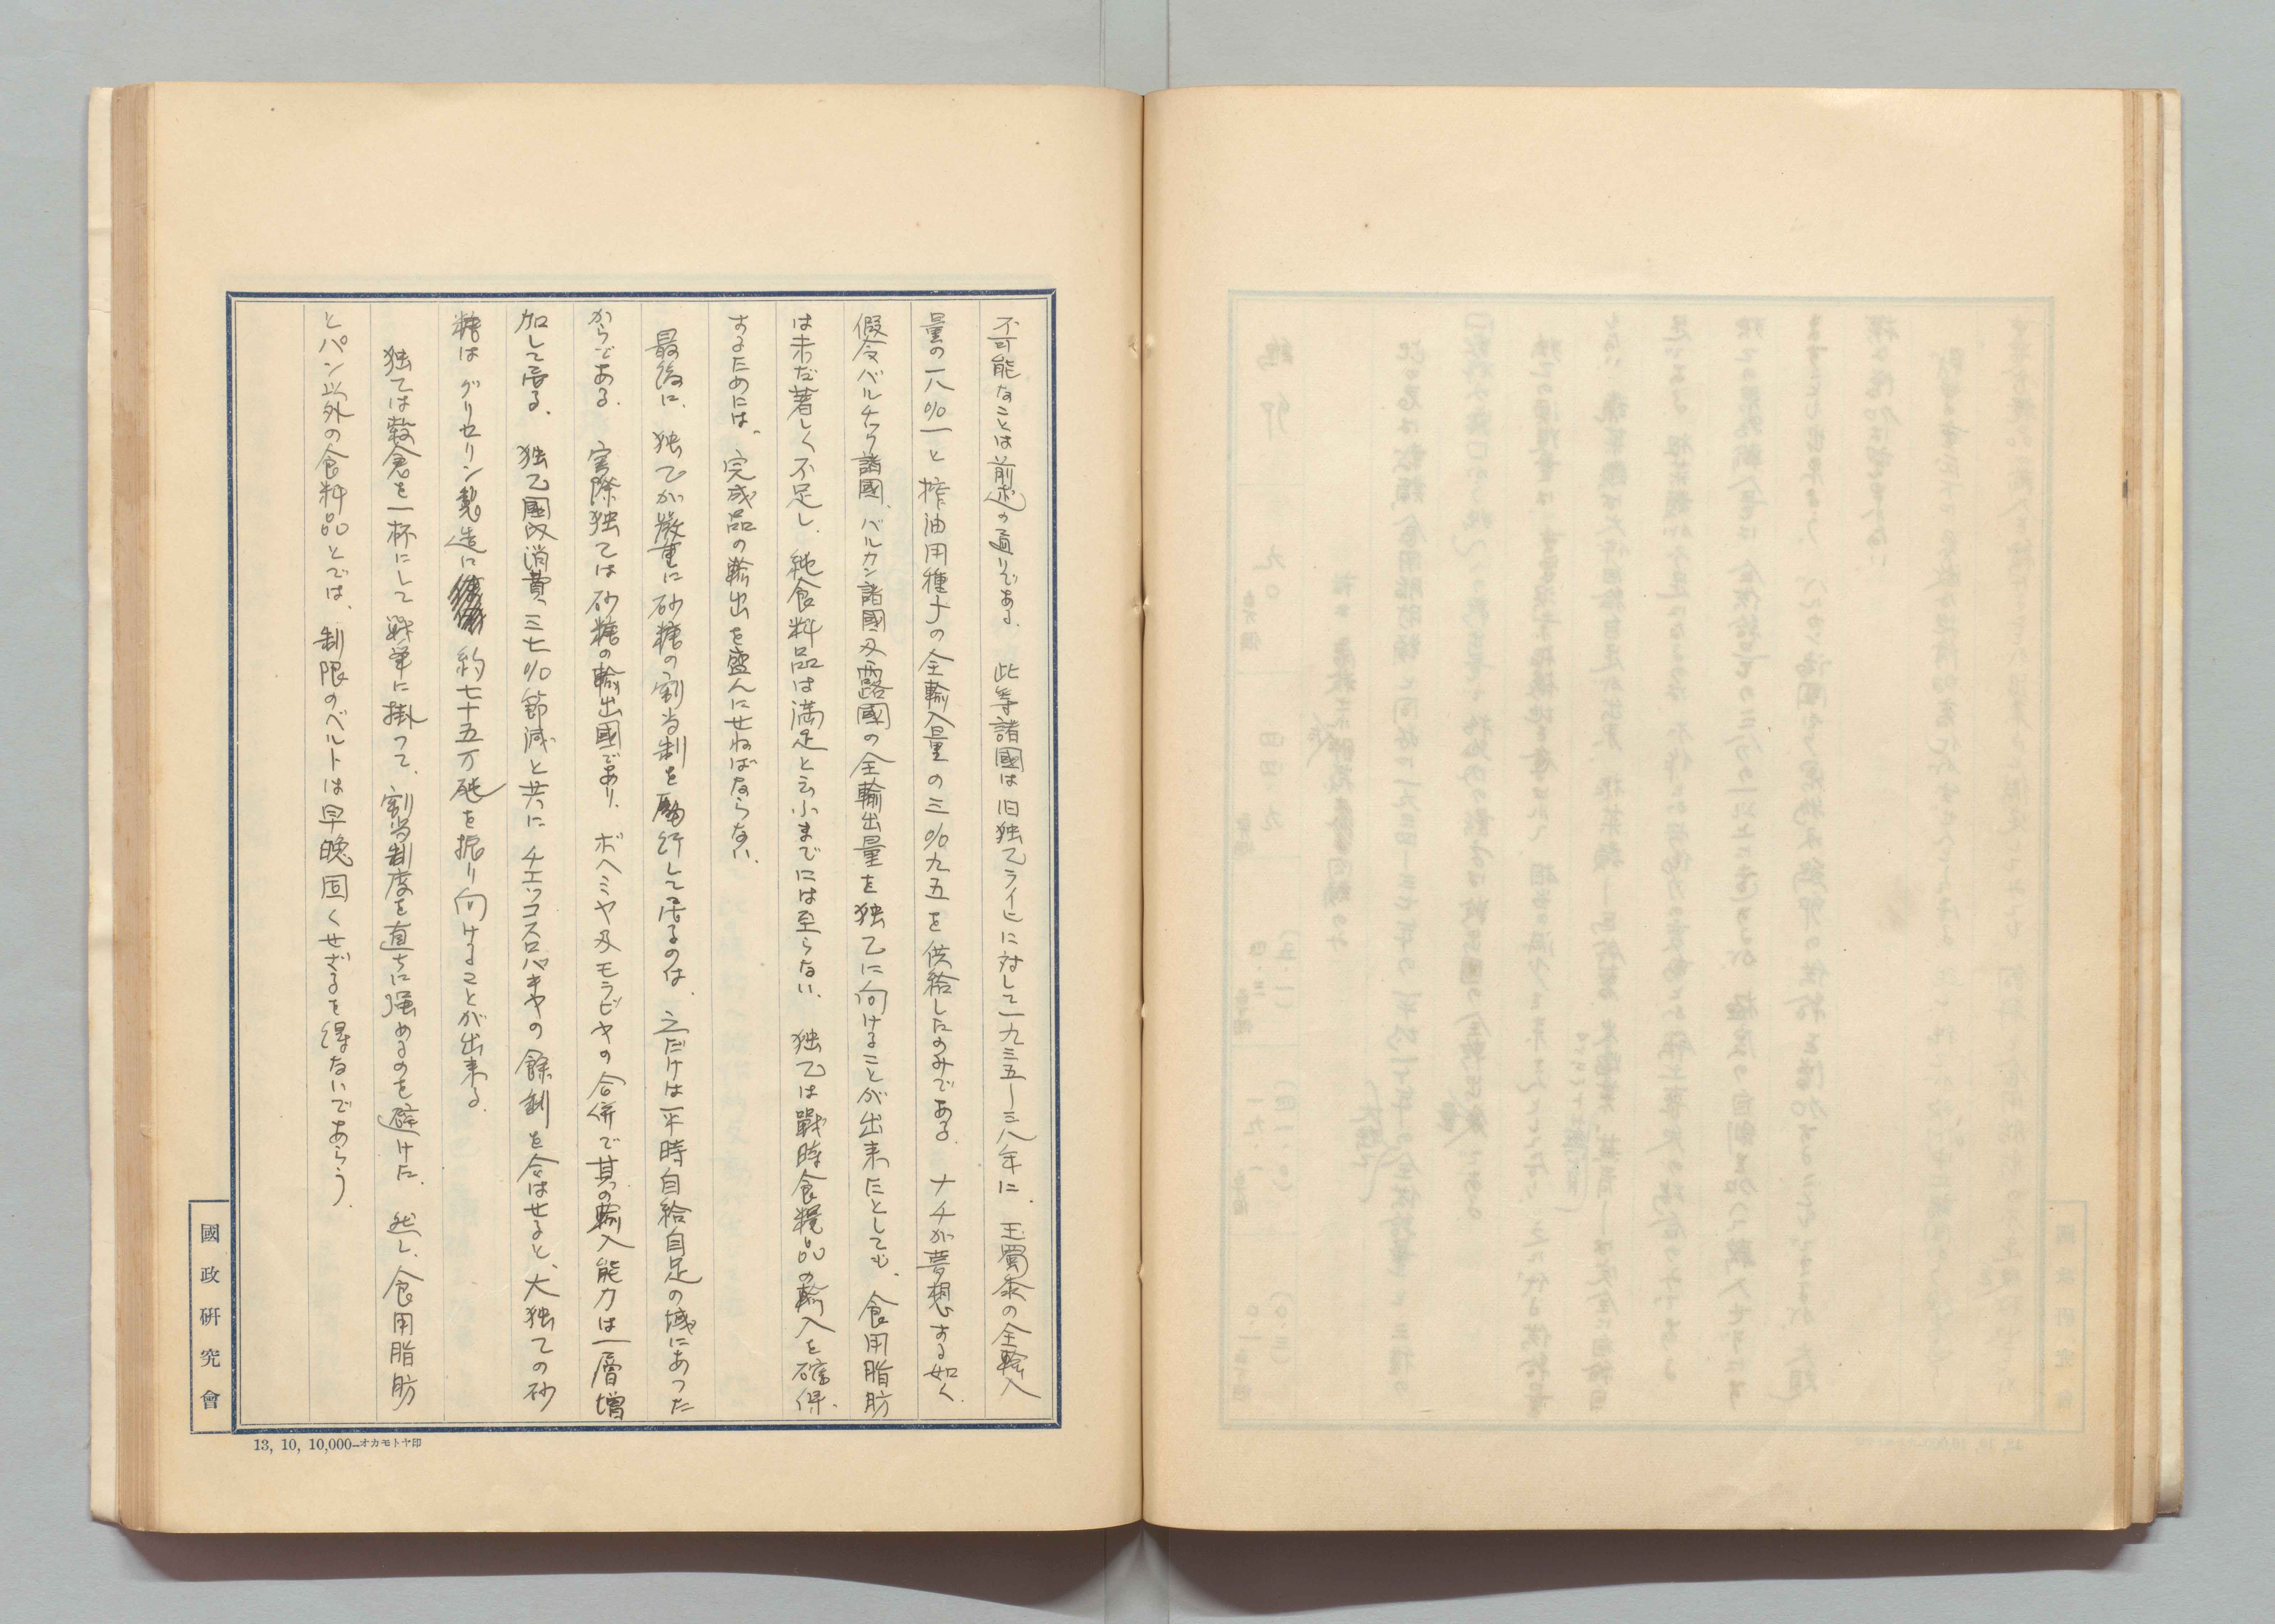 不可能なことは前述の通りである. 此等諸國は旧独乙ライヒに対して一九三五―三八年に. 玉蜀黍の全輸入
量の一八%一と搾油用種子の全輸入量の三%九五を供給したのみである. ナチが夢想する如く.
假令バルチック諸國、バルカン諸國及露國の全輸出量を独乙に向けることが出来たとしても. 食用脂肪
は未だ著しく不足し. 純食料品は満足と云ふまでには至らない. 独乙は戰時食糧品の輸入を確保.
するためには. 完成品の輸出を盛んにせねばならない.
最後に. 独乙が厳重に砂糖の割当制を励行して居るのは. 之だけは平時自給自足の域にあつた
からである. 実際独乙は砂糖の輸出國であり. ボヘミヤ及モラビヤの合併で其の輸入能力は一層増
加して居る. 独乙國内消費、三七%節減と共に チエッコスロバキヤの餘剰を合はせると、大独乙の砂
糖は グリセリン製造に 約七十五万砘を振り向けることが出来る.
独乙は穀倉を一杯にして戦争に掛つて、割当制度を直ちに強めるのを避けた. 然し、食用脂肪
とパン以外の食料品とでは. 制限のベルトは早晩固くせざるを得ないであらう.
國政研究會
13, 10, 10,000—オカモトヤ印